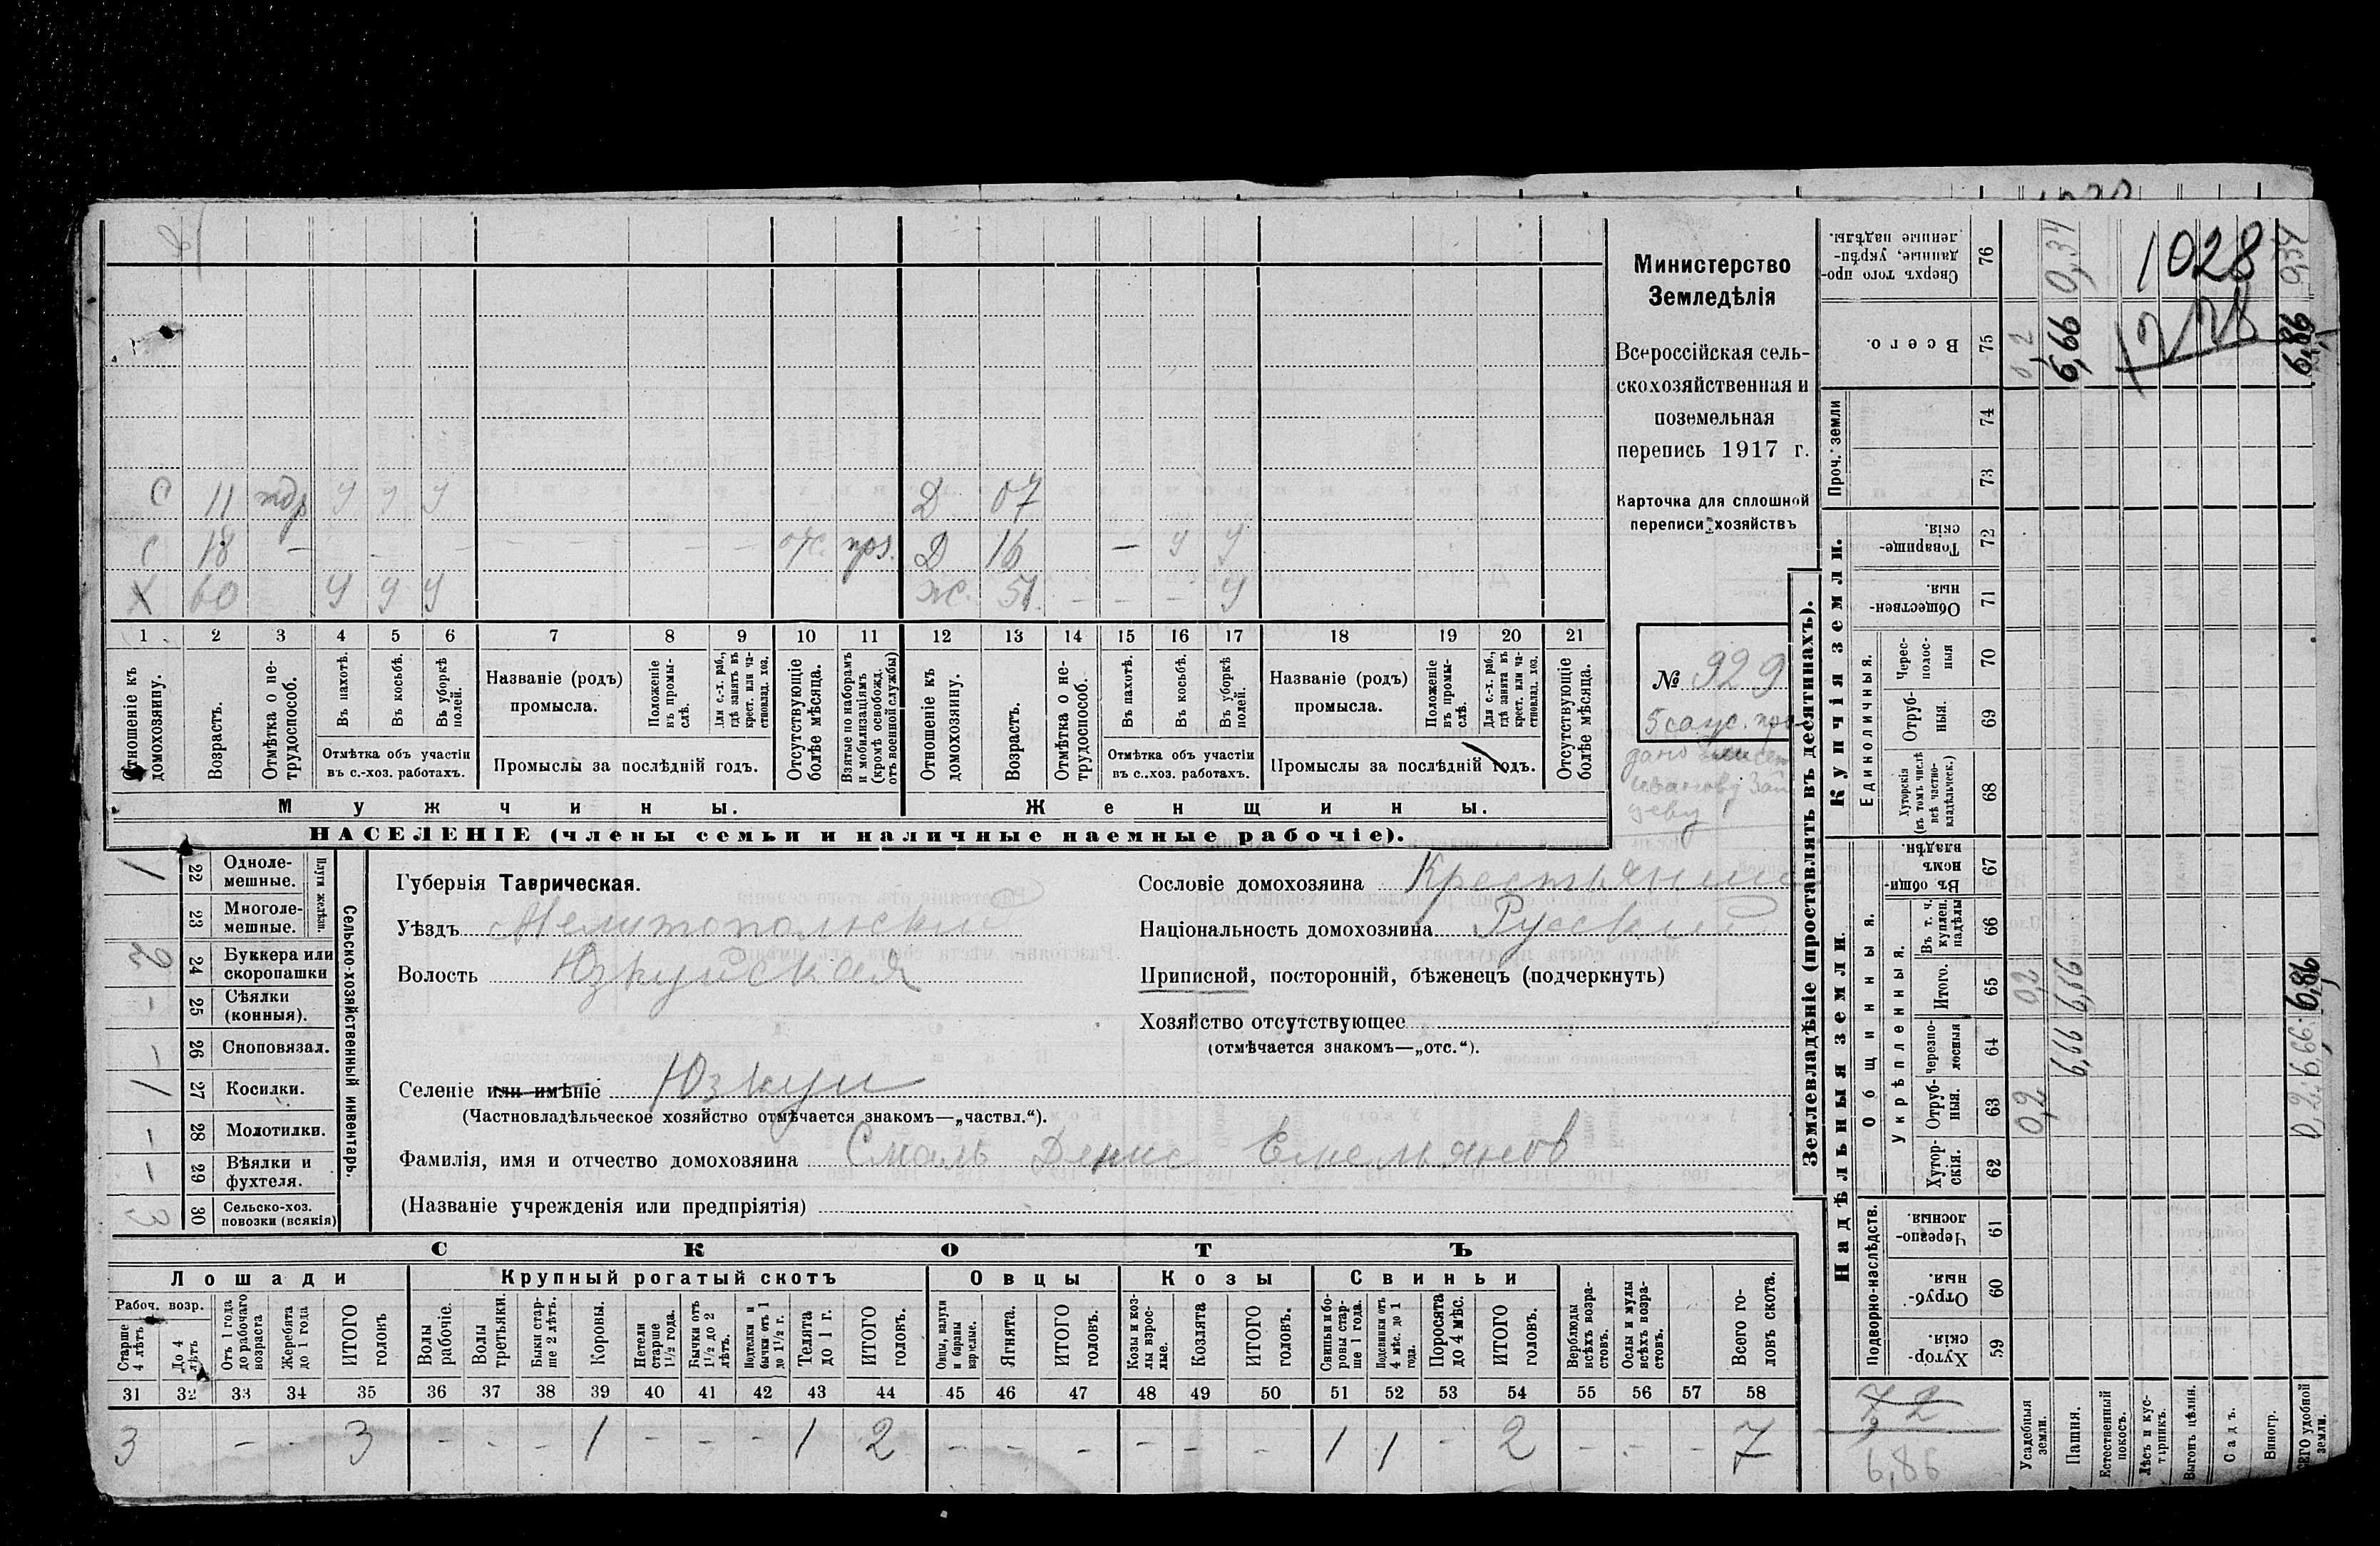 Министерство
Земледѣлія
Всероссійская сель-
скохозяйственная и
поземельная
перепись 1917 г.
Карточка для сплошной
переписи хозяйствъ
№ 929
5 саж. про-
дано
Иванову Зай
цеву
С 11 4 4 4 Д 07
С 18 — — — — — — — отс. Д 16 — у у
Х 60 у у у ж. 51 — — — у
1 2 3 4 5 6 7 8 9 10 11 12 13 14 15 16 17 18 19 20 21
Отношеніе къ домохозяину.
Возрастъ.
Отмѣтка о не-трудоспособ.
Въ пахотѣ.
Въ косьбѣ.
Въ уборкѣ полей.
Отмѣтка объ участіи въ с.-хоз. работахъ.
Названіе (родъ) промысла.
Положеніе въ промы-слѣ.
Для с.-х. раб., гдѣ занятъ въ крест. или ча-стновлад. хоз.
Промыслы за послѣдній годъ.
Отсутствующіе болѣе мѣсяца.
Взятые по наборамъ и мобилизаціямъ (кромѣ освобожд. отъ военной службы)
Отношеніе къ домохозяину.
Возрастъ.
Отмѣтка о не-трудоспособ.
Въ пахотѣ.
Въ косьбѣ.
Въ уборкѣ полей.
Отмѣтка объ участіи въ с.-хоз. работахъ.
Названіе (родъ) промысла.
Положеніе въ промы-слѣ.
Для с.-х. раб., гдѣ занята въ крест. или ча-стновлад. хоз.
Промыслы за послѣдній годъ.
Отсутствующіе болѣе мѣсяца.
Мужчины. Женщины.
НАСЕЛЕНІЕ (члены семьи и наличные наемные рабочіе).
Сельско-хозяйственный инвентарь.
Плуги желѣзн.
1 22 Одноле-мешные.
23 Многоле-мешные.
2 24 Буккера или скоропашки
— 25 Сѣялки (конныя).
— 26 Сноповязал.
1 27 Косилки.
— 28 Молотилки.
— 29 Вѣялки и фухтеля.
3 30 Сельско-хоз. повозки (всякія)
Губернія Таврическая.
Уѣздъ Мелитопольский
Волость Юзкуйская
Селеніе или имѣніе Юзкуи
(Частновладѣльческое хозяйство отмѣчается знакомъ—„частвл.“).
Фамилія, имя и отчество домохозяина Смаль Денис Емельянов
(Названіе учрежденія или предпріятія)
Сословіе домохозяина Крестьянин
Національность домохозяина Русский
Приписной, посторонній, бѣженецъ (подчеркнуть)
Хозяйство отсутствующее
(отмѣчается знакомъ—„отс.“).
СКОТЪ
Лошади Крупный рогатый скотъ Овцы Козы Свиньи
Рабоч. возр.
Старше 4 лѣтъ
До 4 лѣтъ
Отъ 1 года до рабочаго возраста
Жеребята до 1 года
ИТОГО головъ
Волы рабочіе.
Волы третьяки.
Быки стар-ше 2 лѣтъ.
Коровы.
Нетели старше 1½ года.
Бычки отъ 1½ до 2 лѣтъ.
Нетелки и бычки отъ 1 до 1½ г.
Телята до 1 г.
ИТОГО головъ.
Овцы, валухи и бараны взрослые.
Ягнята.
ИТОГО головъ.
Козы и коз-лы взрос-лые.
Козлята
ИТОГО головъ.
Свиньи и бо-ровы стар-ше 1 года.
Подсвинки отъ 4 мѣс. до 1 года.
Поросята до 4 мѣс.
ИТОГО головъ.
Верблюды всѣхъ возра-стовъ.
Ослы и мулы всѣхъ возра-стовъ.
Всего го-ловъ скота.
31 32 33 34 35 36 37 38 39 40 41 42 43 44 45 46 47 48 49 50 51 52 53 54 55 56 57 58
3 — — 3 — — — 1 — — — 1 2 — — — — — — 1 1 — 2 — — — 7
Землевладѣніе (проставлять въ десятинахъ).
Надѣльныя земли. Купчія земли. Проч. земли
Подворно-наслѣдств.
Общинныя.
Укрѣпленныя.
Единоличныя.
Хутор-скія. 59
Отруб-ныя. 60
Черезпо-лосныя. 61
Хутор-скія. 62
Отруб-ныя. 63
Черезпо-лосныя 64
Итого. 65
Въ т. ч. куплен. надѣлы 66
Въ общи-номъ владѣн. 67
Хуторскія (въ томъ числѣ всѣ частно-владѣльческ.) 68
Отруб-ныя. 69
Черес-полос-ныя 70
Обществен-ныя. 71
Товарище-скія. 72
73
74
Всего. 75
Сверхъ того про-данные, укрѣп-ленные надѣлы. 76
Усадебныя земли. 0,2 0,2 0,2
Пашня. 6,66 6,66 6,66 0,34
Естественный покосъ.
Лѣсъ и кус-тарникъ.
Выгонъ цѣлин.
Садъ.
Виногр.
ВСЕГО удобной земли. 0,2 6,66 6,86 6,86 0,34
7,2
6,86
1028
1228